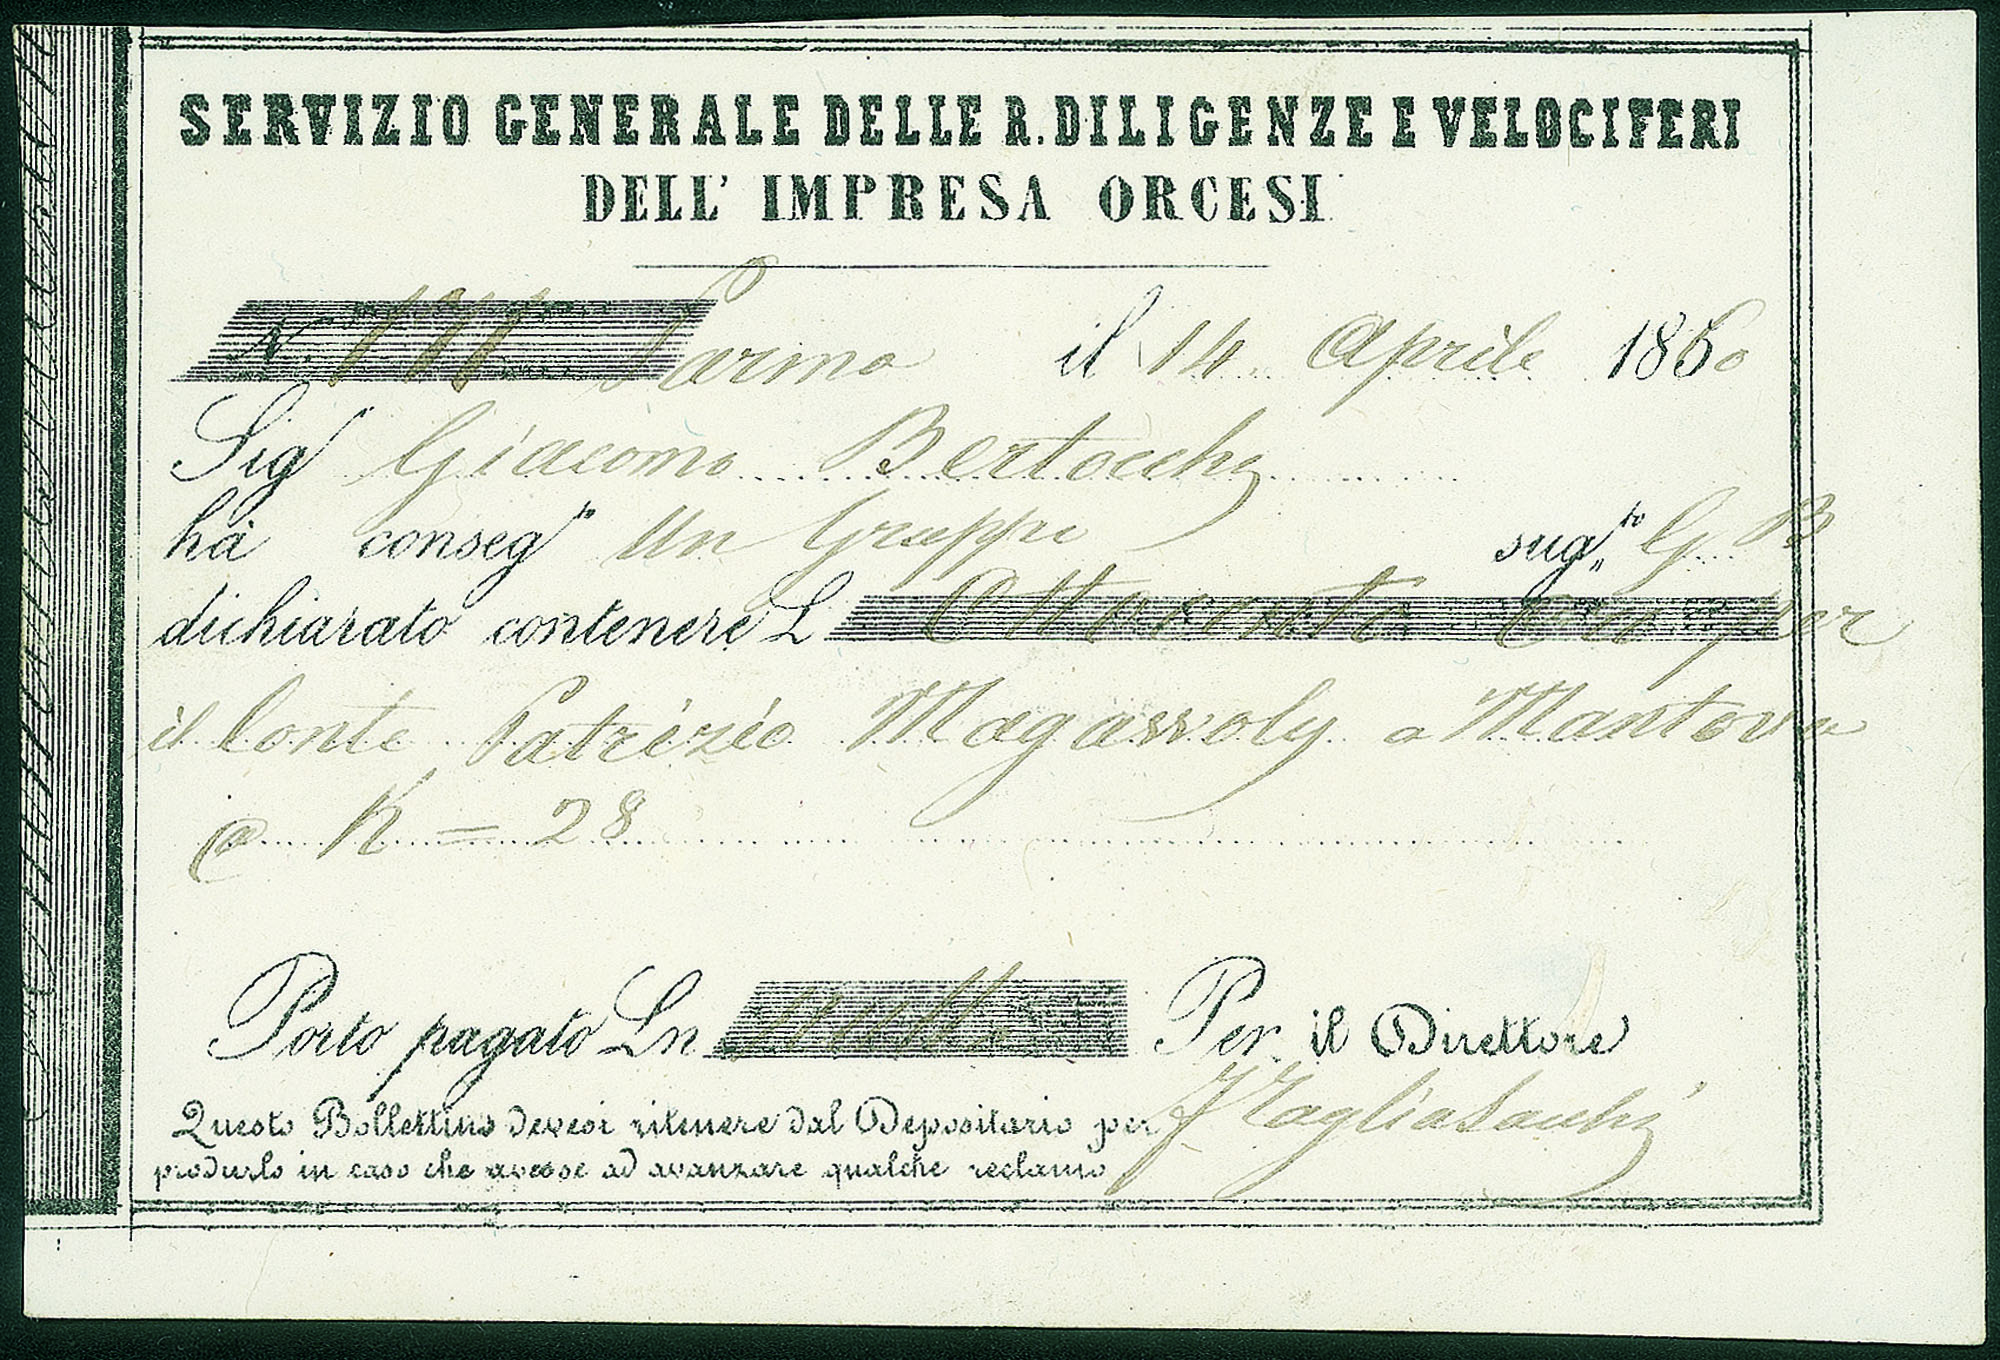 SERVIZIO GENERALE DELLE R. DILIGENZE E VELOCIFERI
DELL' IMPRESA ORCESI
N. Parma il 14 Aprile 1860
Sigr Giacomo Bertocchi
ha consegto Un Gruppo sugto G B
dichiarato contenere L Ottocento Oro per
il Conte Patrizio a Mantova
K = 28
Porto pagato Ln nulla Per il Direttore
Questo Bollettino devesi ritenere dal Depositario per
produrlo in caso che avesse ad avanzare qualche reclamo
Tagliasacchi